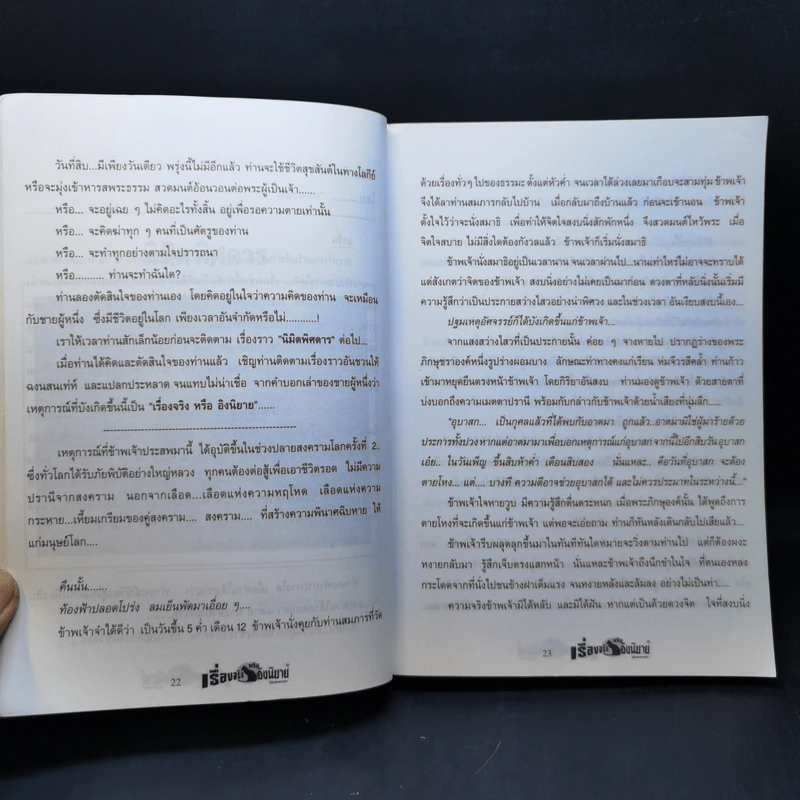 วันที่สิบ...มีเพียงวันเดียว พรุ่งนี้ไม่มีอีกแล้ว ท่านจะใช้ชีวิตสุขสันต์ในทางโลกีย์
หรือจะมุ่งเข้าหารสพระธรรม สวดมนต์อ้อนวอนต่อพระผู้เป็นเจ้า......
หรือ... จะอยู่เฉย ๆ ไม่คิดอะไรทั้งสิ้น อยู่เพื่อรอความตายเท่านั้น
หรือ... จะคิดฆ่าทุก ๆ คนที่เป็นศัตรูของท่าน
หรือ... จะทำทุกอย่างตามใจปรารถนา
หรือ.......... ท่านจะทำฉันใด?
ท่านลองตัดสินใจของท่านเอง โดยคิดอยู่ในใจว่าความคิดของท่าน จะเหมือน
กับชายผู้หนึ่ง ซึ่งมีชีวิตอยู่ในโลก เพียงเวลาอันจำกัดหรือไม่..........!
เราให้เวลาท่านสักเล็กน้อยก่อนจะติดตาม เรื่องราว "นิมิตพิศดาร" ต่อไป...
เมื่อท่านได้คิดและตัดสินใจของท่านแล้ว เชิญท่านติดตามเรื่องราวอันชวนให้
ฉงนสนเท่ห์ และแปลกประหลาด จนแทบไม่น่าเชื่อ จากคำบอกเล่าของชายผู้หนึ่งว่า
เหตุการณ์ที่บังเกิดขึ้นนี้เป็น "เรื่องจริง หรือ อิงนิยาย"......
เหตุการณ์ที่ข้าพเจ้าประสพมานี้ ได้อุบัติขึ้นในช่วงปลายสงครามโลกครั้งที่ 2..
ซึ่งทั่วโลกได้รับภัยพิบัติอย่างใหญ่หลวง ทุกคนต้องต่อสู้เพื่อเอาชีวิตรอด ไม่มีความ
ปรานีจากสงคราม นอกจากเลือด...เลือดแห่งความหฤโหด เลือดแห่งความ
กระหาย...เหี้ยมเกรียมของคู่สงคราม.... สงคราม.... ที่สร้างความพินาศฉิบหาย ให้
แก่มนุษย์โลก....
คืนนั้น.....
ท้องฟ้าปลอดโปร่ง ลมเย็นพัดมาเอื่อย ๆ....
ข้าพเจ้าจำได้ดีว่า เป็นวันขึ้น 5 ค่ำ เดือน 12 ข้าพเจ้านั่งคุยกับท่านสมภารที่วัด
22 เรื่องจริงหรืออิงนิยาย
ด้วยเรื่องทั่วๆ ไปของธรรมะ ตั้งแต่หัวค่ำ จนเวลาได้ล่วงเลยมาเกือบจะสามทุ่ม ข้าพเจ้า
จึงได้ลาท่านสมภารกลับไปบ้าน เมื่อกลับมาถึงบ้านแล้ว ก่อนจะเข้านอน ข้าพเจ้า
ตั้งใจไว้ว่าจะนั่งสมาธิ เพื่อทำให้จิตใจสงบนิ่งสักพักหนึ่ง จึงสวดมนต์ไหว้พระ เมื่อ
จิตใจสบาย ไม่มีสิ่งใดต้องกังวลแล้ว ข้าพเจ้าก็เริ่มนั่งสมาธิ
ข้าพเจ้านั่งสมาธิอยู่เป็นเวลานาน จนเวลาผ่านไป...นานเท่าไหร่ไม่อาจจะทราบได้
แต่สังเกตว่าจิตของข้าพเจ้า สงบนิ่งอย่างไม่เคยเป็นมาก่อน ดวงตาที่หลับนิ่งนั้นเริ่มมี
ความรู้สึกว่าเป็นประกายสว่างไสวอย่างน่าพิศวง และในช่วงเวลา อันเงียบสงบนี้เอง...
ปฐมเหตุอัศจรรย์ก็ได้บังเกิดขึ้นแก่ข้าพเจ้า...
จากแสงสว่างไสวที่เป็นประกายนั้น ค่อย ๆ จางหายไป ปรากฏร่างของพระ
ภิกษุชราองค์หนึ่งรูปร่างผอมบาง ลักษณะท่าทางคงแก่เรียน ห่มจีวรสีคล้ำ ท่านก้าว
เข้ามาหยุดยืนตรงหน้าข้าพเจ้า โดยกิริยาอันสงบ ท่านมองดูข้าพเจ้า ด้วยสายตาที่
บ่งบอกถึงความเมตตาปรานี พร้อมกับกล่าวกับข้าพเจ้าด้วยน้ำเสียงที่นุ่มลึก....
"อุบาสก... เป็นกุศลแล้วที่ได้พบกับอาตมา ถูกแล้ว..อาตมามิใช่ผู้มาร้ายด้วย
ประการทั้งปวง หากแต่อาตมามาเพื่อบอกเหตุการณ์แก่อุบาสก จากนี้ไปอีกสิบวันอุบาสก
เอ๋ย.. ในวันเพ็ญ ขึ้นสิบห้าค่ำ เดือนสิบสอง นั่นแหละ... คือวันที่อุบาสก จะต้อง
ตายโหง... แต่.... บางที ความดีอาจช่วยอุบาสกได้ และไม่ควรประมาทในระหว่างนี้..."
ข้าพเจ้าใจหายวูบ มีความรู้สึกตื่นตระหนก เมื่อพระภิกษุองค์นั้น ได้พูดถึงการ
ตายโหงที่จะเกิดขึ้นแก่ข้าพเจ้า แต่พอจะเอ่ยถาม ท่านก็หันหลังเดินกลับไปเสียแล้ว...
ข้าพเจ้ารีบผลุดลุกขึ้นมาในทันทีทันใดหมายจะวิ่งตามท่านไป แต่ก็ต้องผงะ
หงายกลับมา รู้สึกเจ็บตรงแสกหน้า นั่นและข้าพเจ้าถึงนึกขำในใจ ที่ตนเองหลง
กระโดดจากที่นั่งไปชนข้างฝาเต็มแรง จนหงายหลังและล้มลง อย่างไม่เป็นท่า.....
ความจริงข้าพเจ้ามิได้หลับ และมิได้ฝัน หากแต่เป็นด้วยดวงจิต ใจที่สงบนิ่ง
23 เรื่องจริงหรืออิงนิยาย